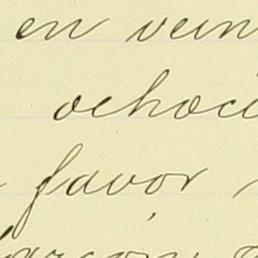 en vein
ochoci
favor